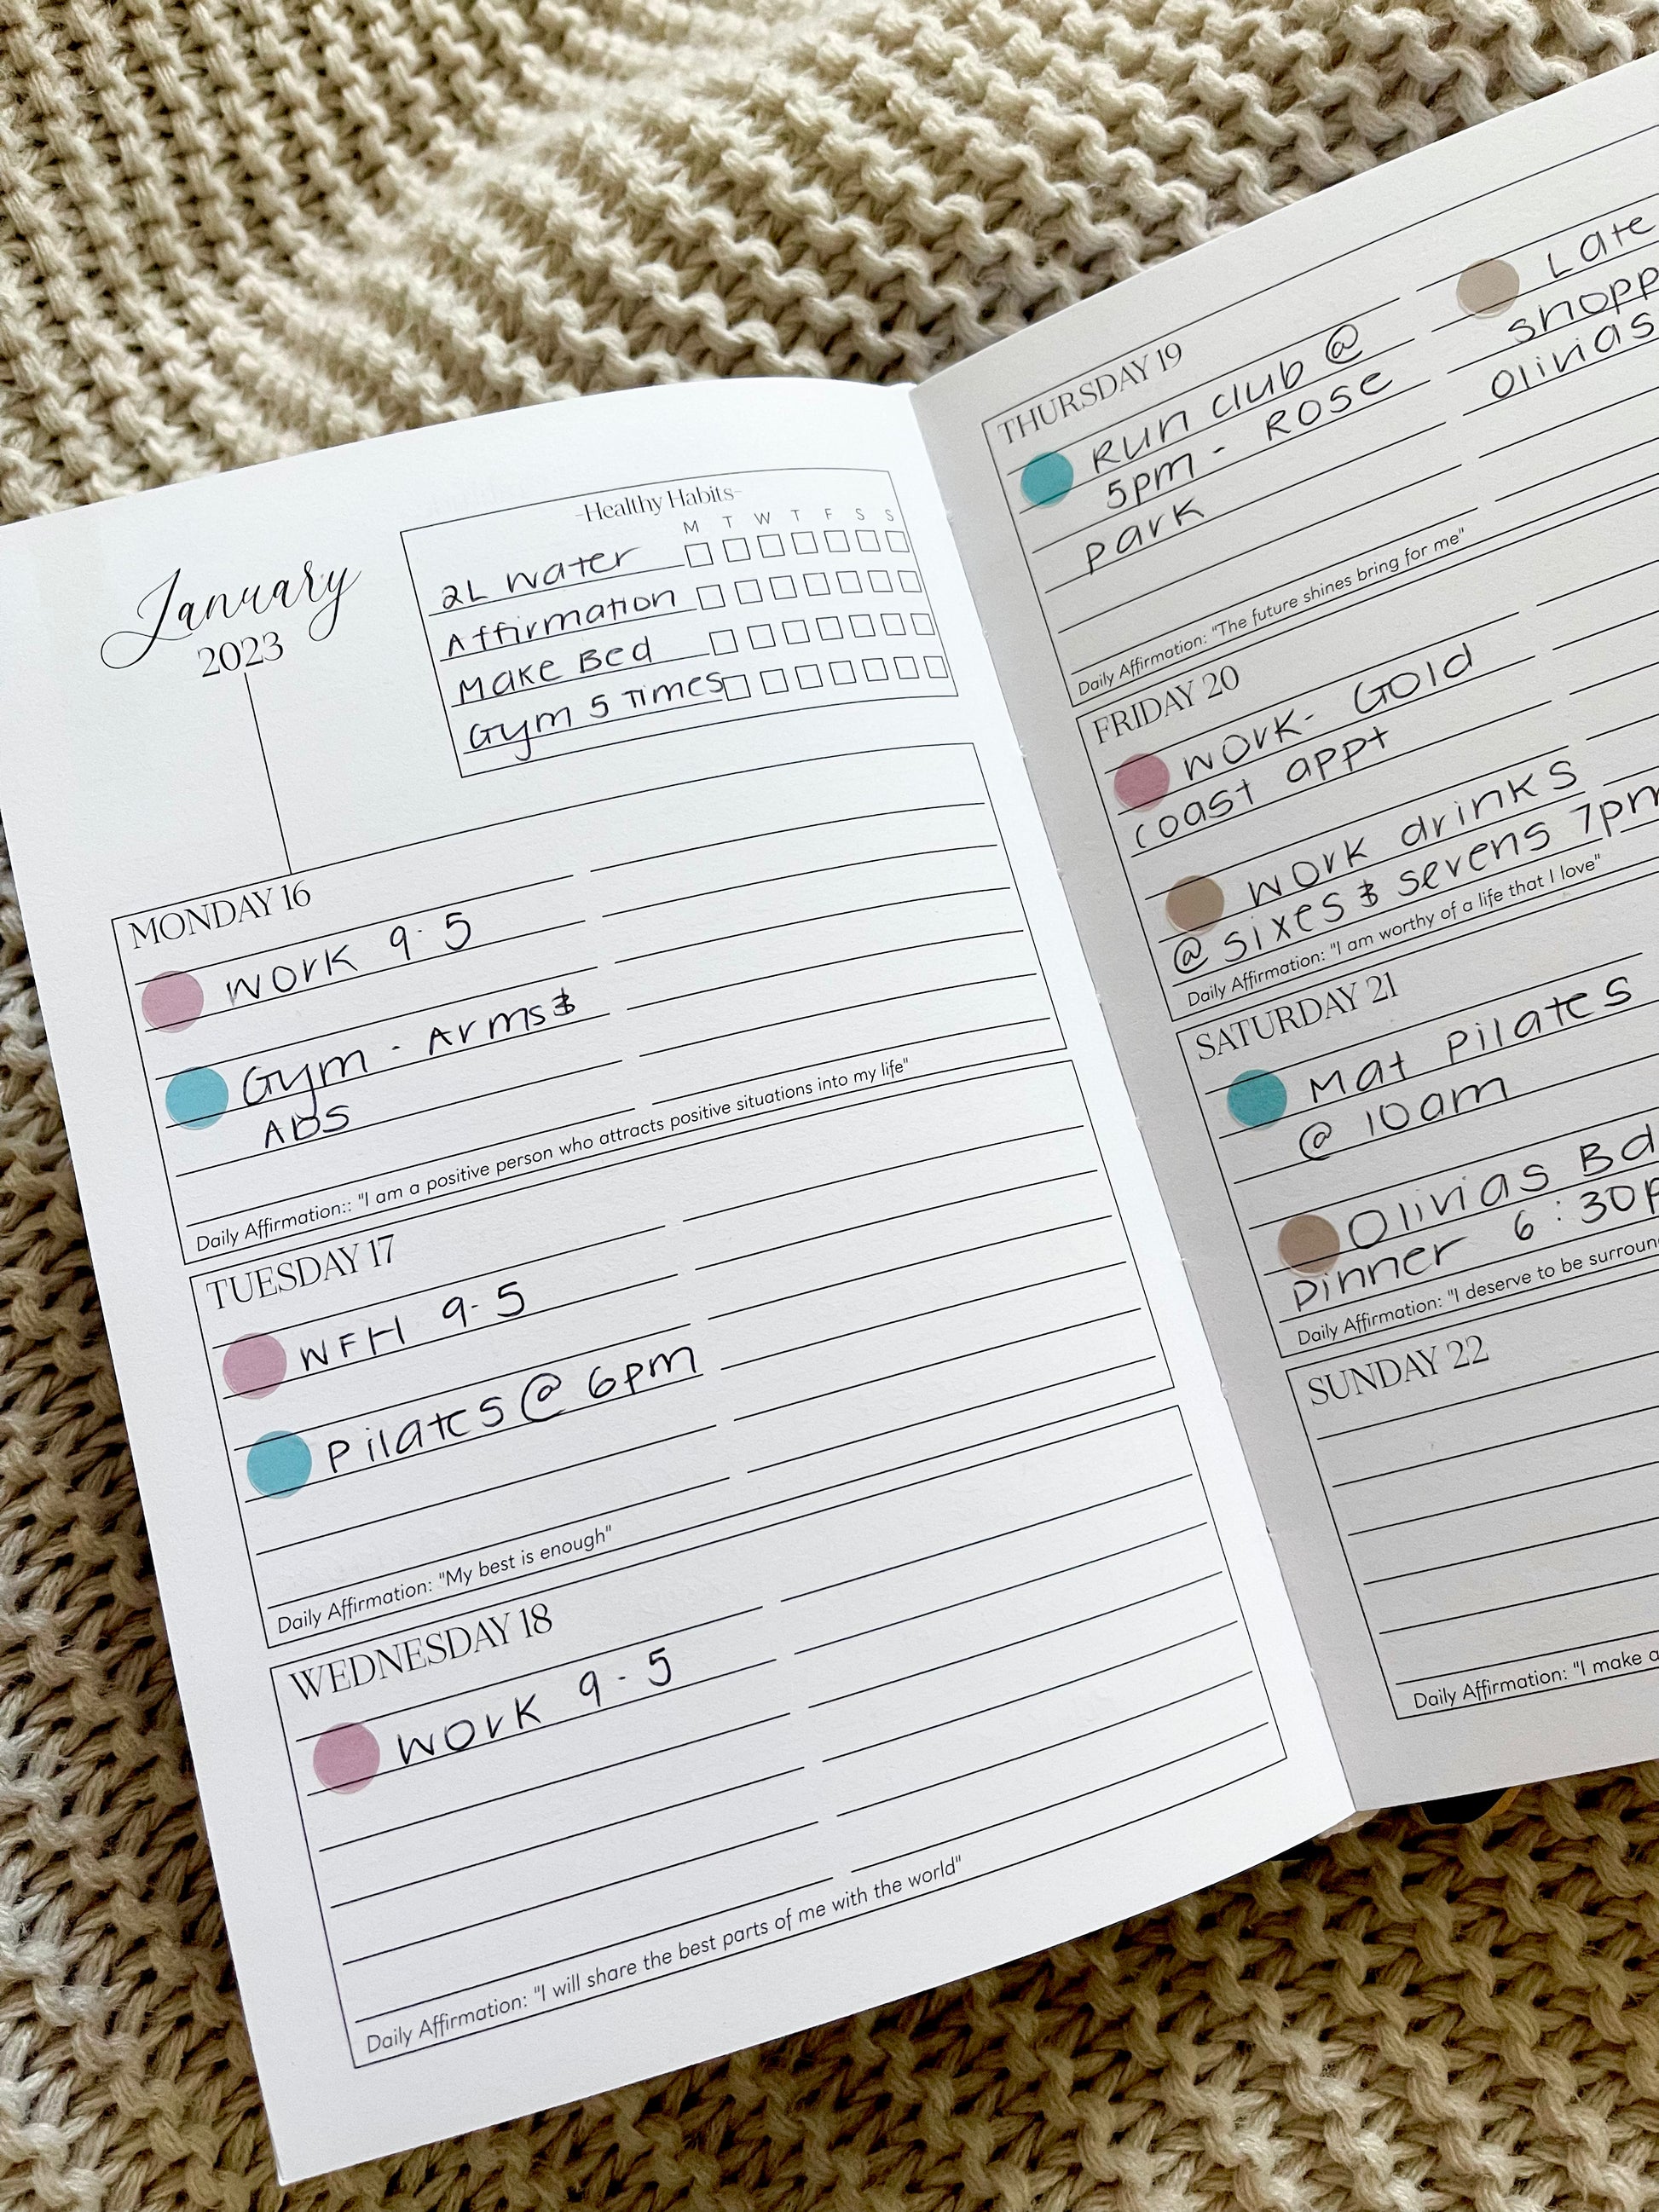 January
2023
-Healthy Habits-
M T W T F S S
2L Water
Affirmation
Make Bed
Gym 5 Times
MONDAY 16
Work 9-5
Gym - Arms &
Abs
Daily Affirmation:: "I am a positive person who attracts positive situations into my life"
TUESDAY 17
WFH 9-5
Pilates @ 6pm
Daily Affirmation: "My best is enough"
WEDNESDAY 18
Work 9-5
Daily Affirmation: "I will share the best parts of me with the world"
THURSDAY 19
Run club @
5pm - Rose
Park
Late
shopp
Olivias
Daily Affirmation: "The future shines bring for me"
FRIDAY 20
Work - Gold
coast appt
Work drinks
@ sixes & sevens 7pm
Daily Affirmation: "I am worthy of a life that I love"
SATURDAY 21
Mat Pilates
@ 10am
Olivias Bd
Dinner 6:30p
Daily Affirmation: "I deserve to be surroun
SUNDAY 22
Daily Affirmation: "I make a